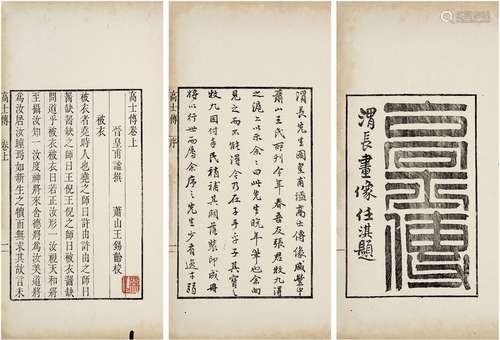 高士傳
渭長畫像任淇題
渭長先生圖皇甫謐高士傳像咸豐中
蕭山王氏所刊今年春吾友張君牧九得
之滬上以示余余曰此先生晚年筆也余向
見之而不能得今乃在子手乎子其寶之
牧九因付手民補其闕落裝印成冊
將以行世而屬余序之先生少有
高士傳 序
高士傳卷上
晉皇甫謐撰 蕭山王錫齡校
被衣
被衣者堯時人也堯之師曰許由許由之師曰
齧缺齧缺之師曰王倪王倪之師曰被衣齧缺
問道乎被衣被衣曰若正汝形一汝視天和將
至攝汝知一汝度神將來舍德將爲汝美道將
爲汝居汝瞳焉如新生之犢而無求其故言未
高士傳 卷上